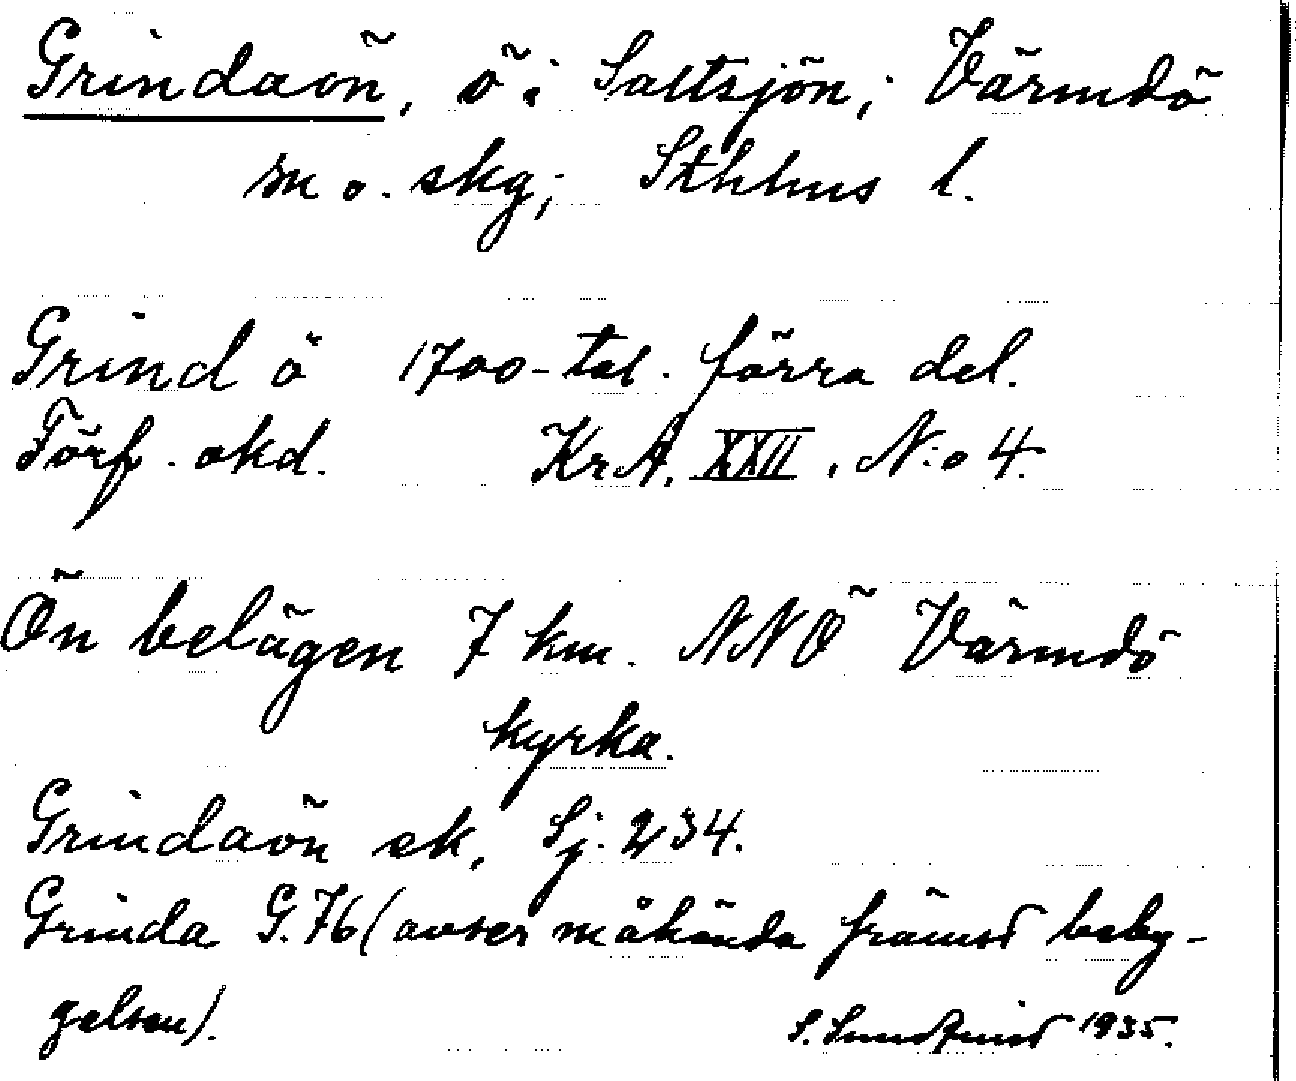 Grindaön, ö i Saltsjön, Värmdö
m o. skg; Sthlms l.
Grind ö 1700-tal. förra del.
Förf. okd. KrA. XXII. N:o 4.
Ön belägen 7 km. NNÖ Värmdö
kyrka.
Grindaön ek, Sj. 234.
Grinda G. 76 (avser måhända främst beby-
gelsen).
S. 1935.